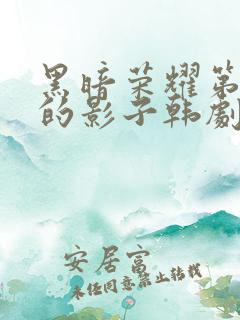 黑暗荣耀第
的影子韩劇
安居富
未经同意禁止转载